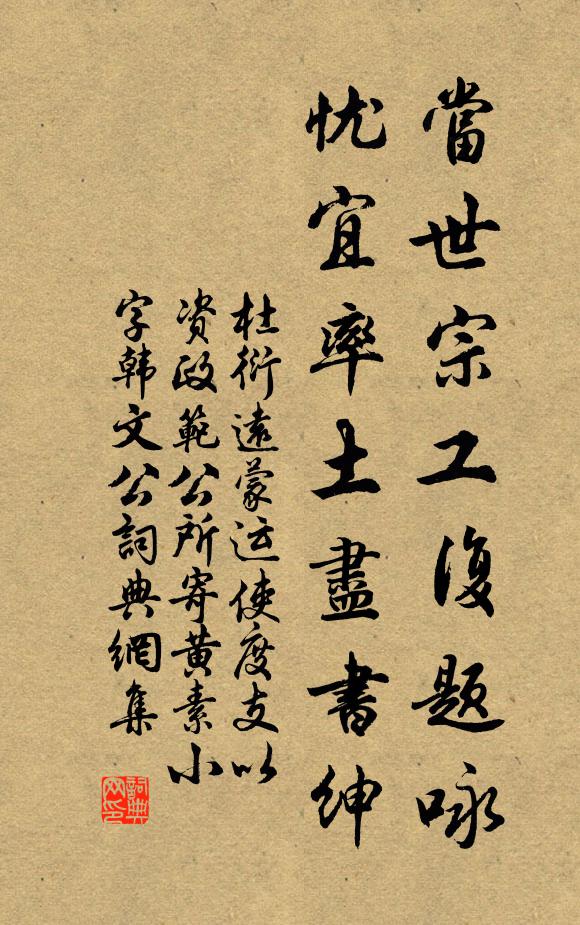 當世宗工復题咏
忧宜率土盡書紳
杜衍遠蒙运使度支以
资政範公所寄黄素小
字韩文公詞典網集
詞典网印